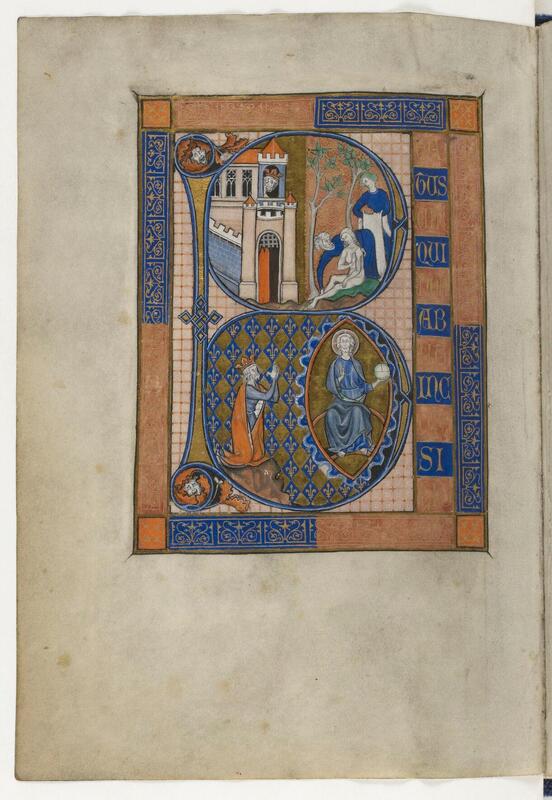 B
TUS
QUI
AB
INC
SI